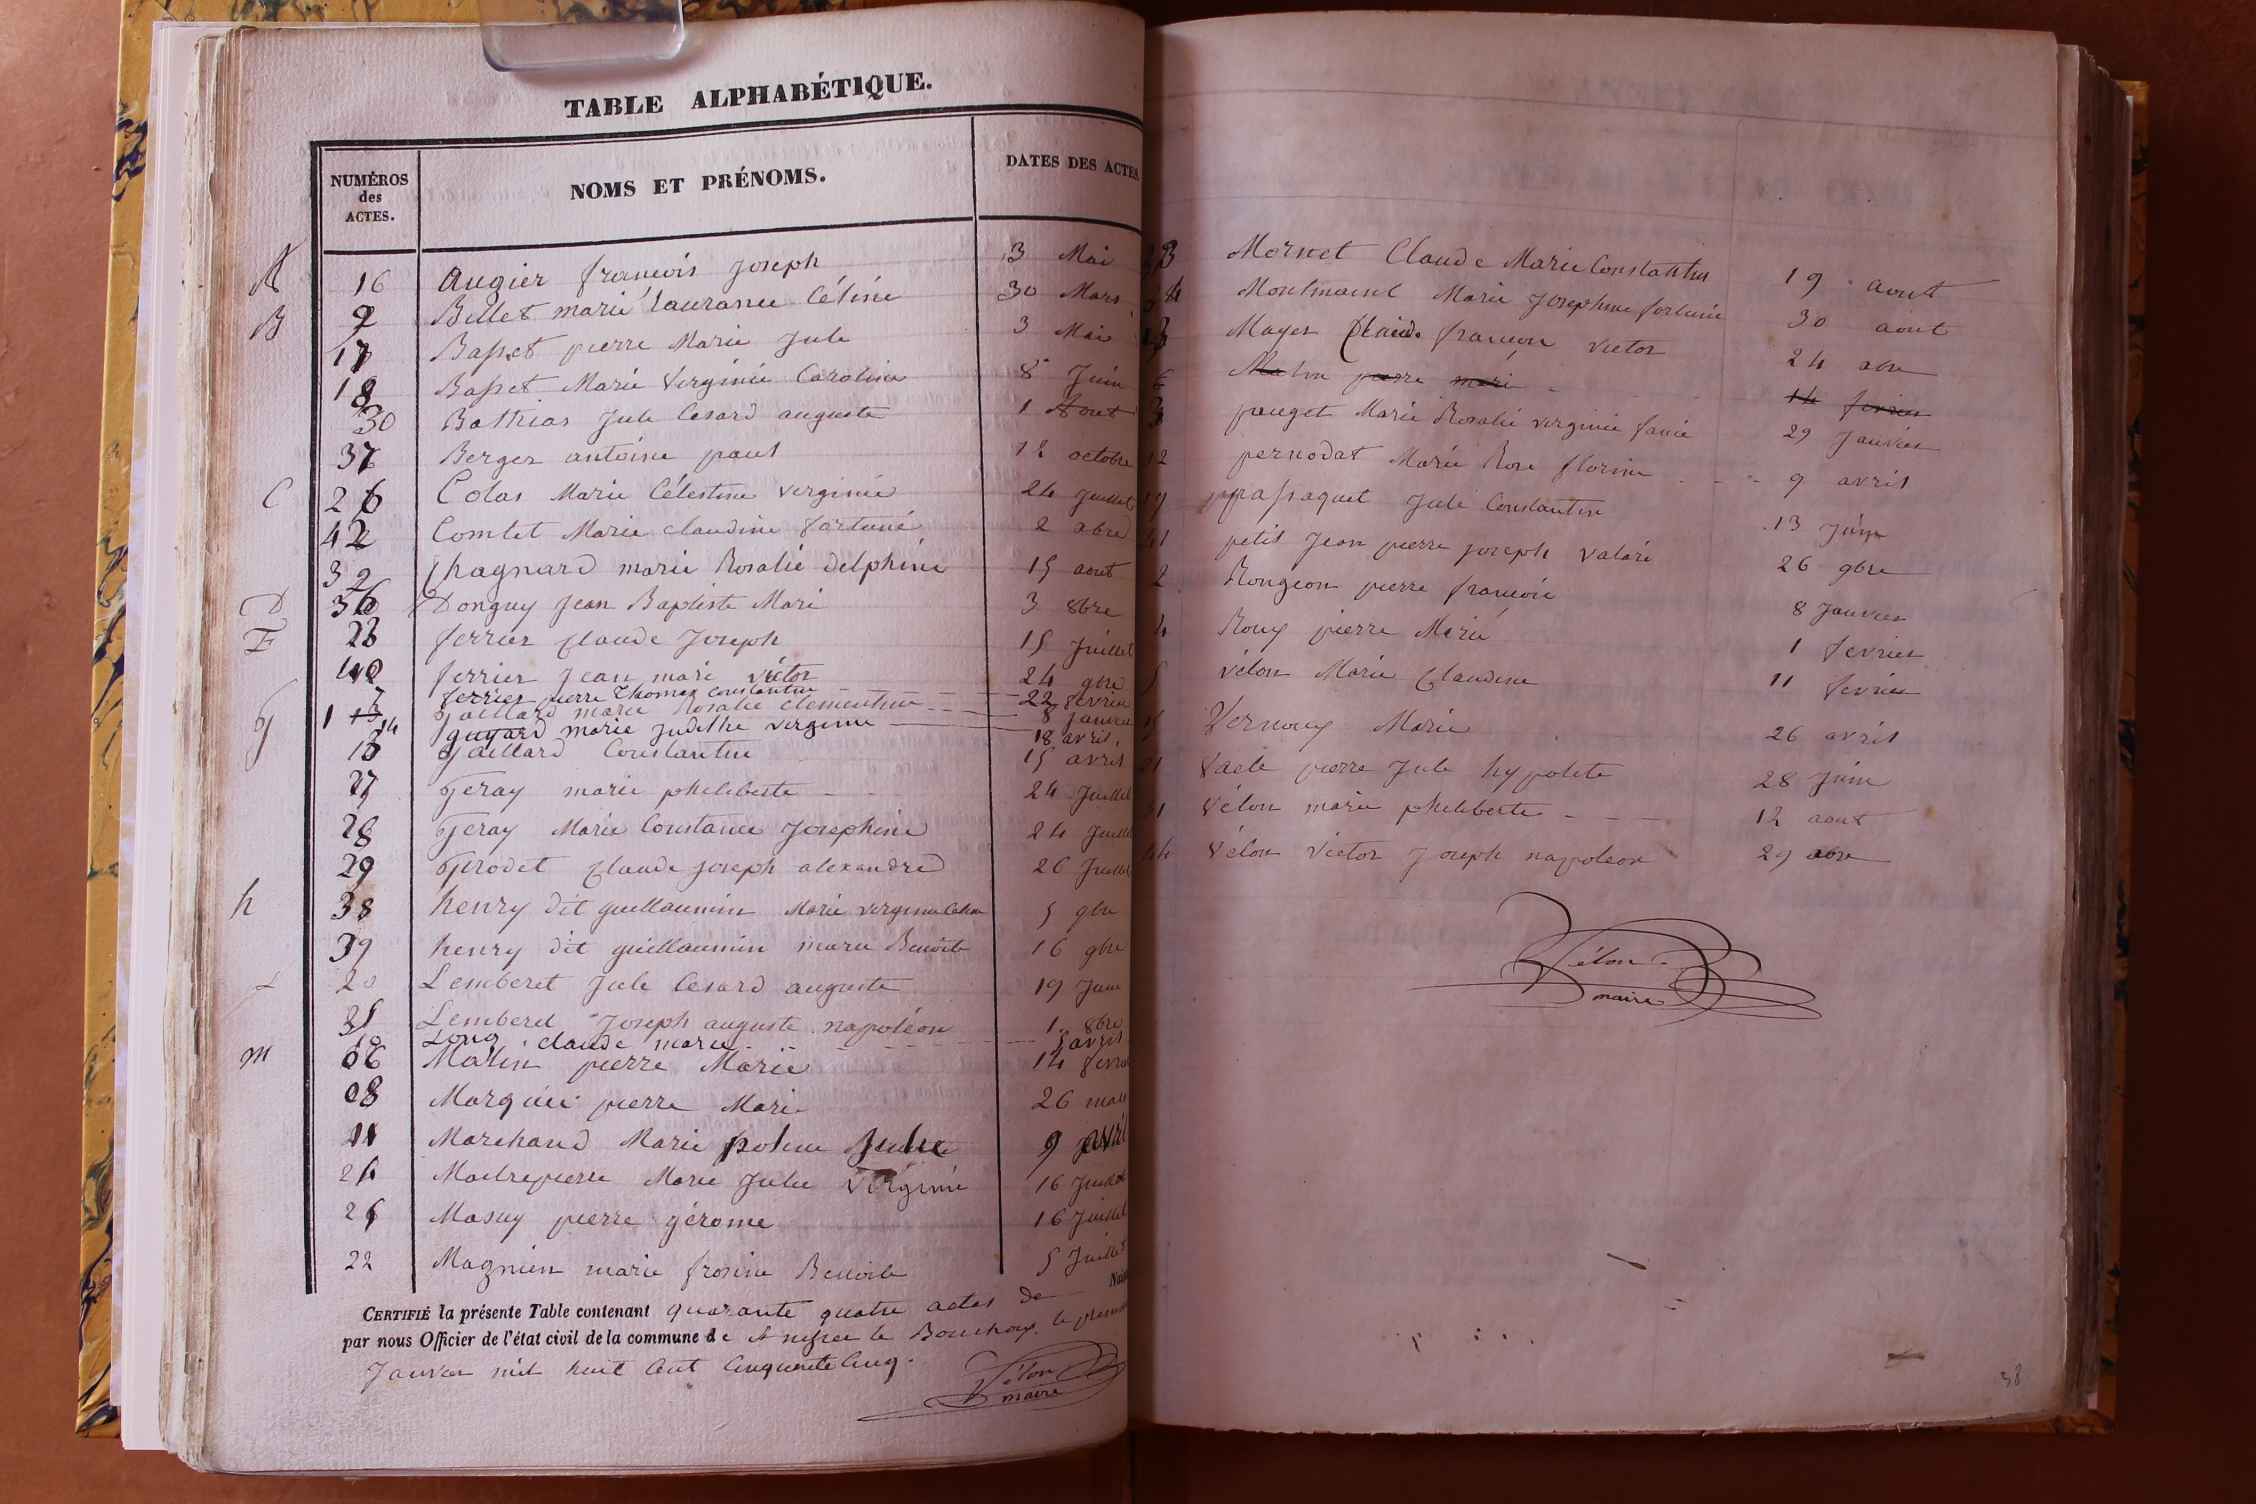 TABLE ALPHABÉTIQUE.
NUMÉROS des ACTES. NOMS ET PRÉNOMS. DATES DES ACTES
A 16 Augier francois Joseph 3 Mai
B 9 Billet marie Laurance Céline 30 Mars
17 Basset pierre Marie Jule 3 Mai
18 Basset Marie Virginie Caroline 8 Juin
30 Bathias Jule Cesard auguste 1 Aout
37 Berger antoine paul 12 octobre
C 26 Colas Marie Célestine virginie 24 Juillet
42 Comtet Marie claudine fortuné 2 xbre
32 Chagnard marie Rosalie delphine 15 aout
D 36 Donguy Jean Baptiste Mari 3 8bre
F 23 ferrier Claude Joseph 15 Juillet
40 ferrier Jean mari victor 24 gbre
7 ferrier pierre Thomas constantin 22 fevrier
G 1 Gaillard marie Rosalie clementine 8 Janvier
14 guyard marie Judithe virginie 18 avril
13 Gaillard Constantin 15 avril
27 Geray marie pheliberte 24 Juillet
28 Geray Marie Constance Josephine 24 Juillet
29 Grodet Claude Joseph alexandre 26 Juillet
h 38 henry dit guillaumin Marie virginie 5 gbre
39 henry dit guillaumin marie Benoite 16 gbre
L 20 Lemberet Jule Cesard auguste 19 Juin
35 Lemberet Joseph auguste napoléon 1 8bre
10 Long claude marie 5 avril
m 06 Matin pierre Marie 14 fevrier
08 Marquis pierre Mari 26 mars
11 Marchand Marie poline Julie 9 avril
24 Maitrepierre Marie Julie Virginie 16 Juillet
25 Masuy pierre gérome 16 Juillet
22 Magnien marie frosine Benoite 5 Juillet
CERTIFIÉ la présente Table contenant quarante quatre actes de
par nous Officier de l'état civil de la commune de le Bouchoux le premier
Janvier mil huit Cent Cinquante Cinq.
Vélon
maire
33 Mornet Claude Marie Constantin 19 aout
34 Montmaint Marie Josephine fortuné 30 aout
Mayer Claude françois victor 24 xbre
6 Matin pierre mari 14 fevrier
3 pauget Marie Rosalie virginie fanie 29 Janvier
12 pernodat Marie Rose florine 9 avril
19 passaquet Jule Constantin 13 Juin
41 petit Jean pierre joseph valéri 26 gbre
2 Rongeon pierre francois 8 Janvier
4 Roux pierre Marie 1 fevrier
5 vélon Marie Claudine 11 fevrier
15 Vernoux Marie 26 avril
21 Vaele pierre Jule hypolite 28 Juin
31 Vélon marie pheliberte 12 aout
44 Vélon Victor Joseph napoleon 29 xbre
Vélon
maire
38